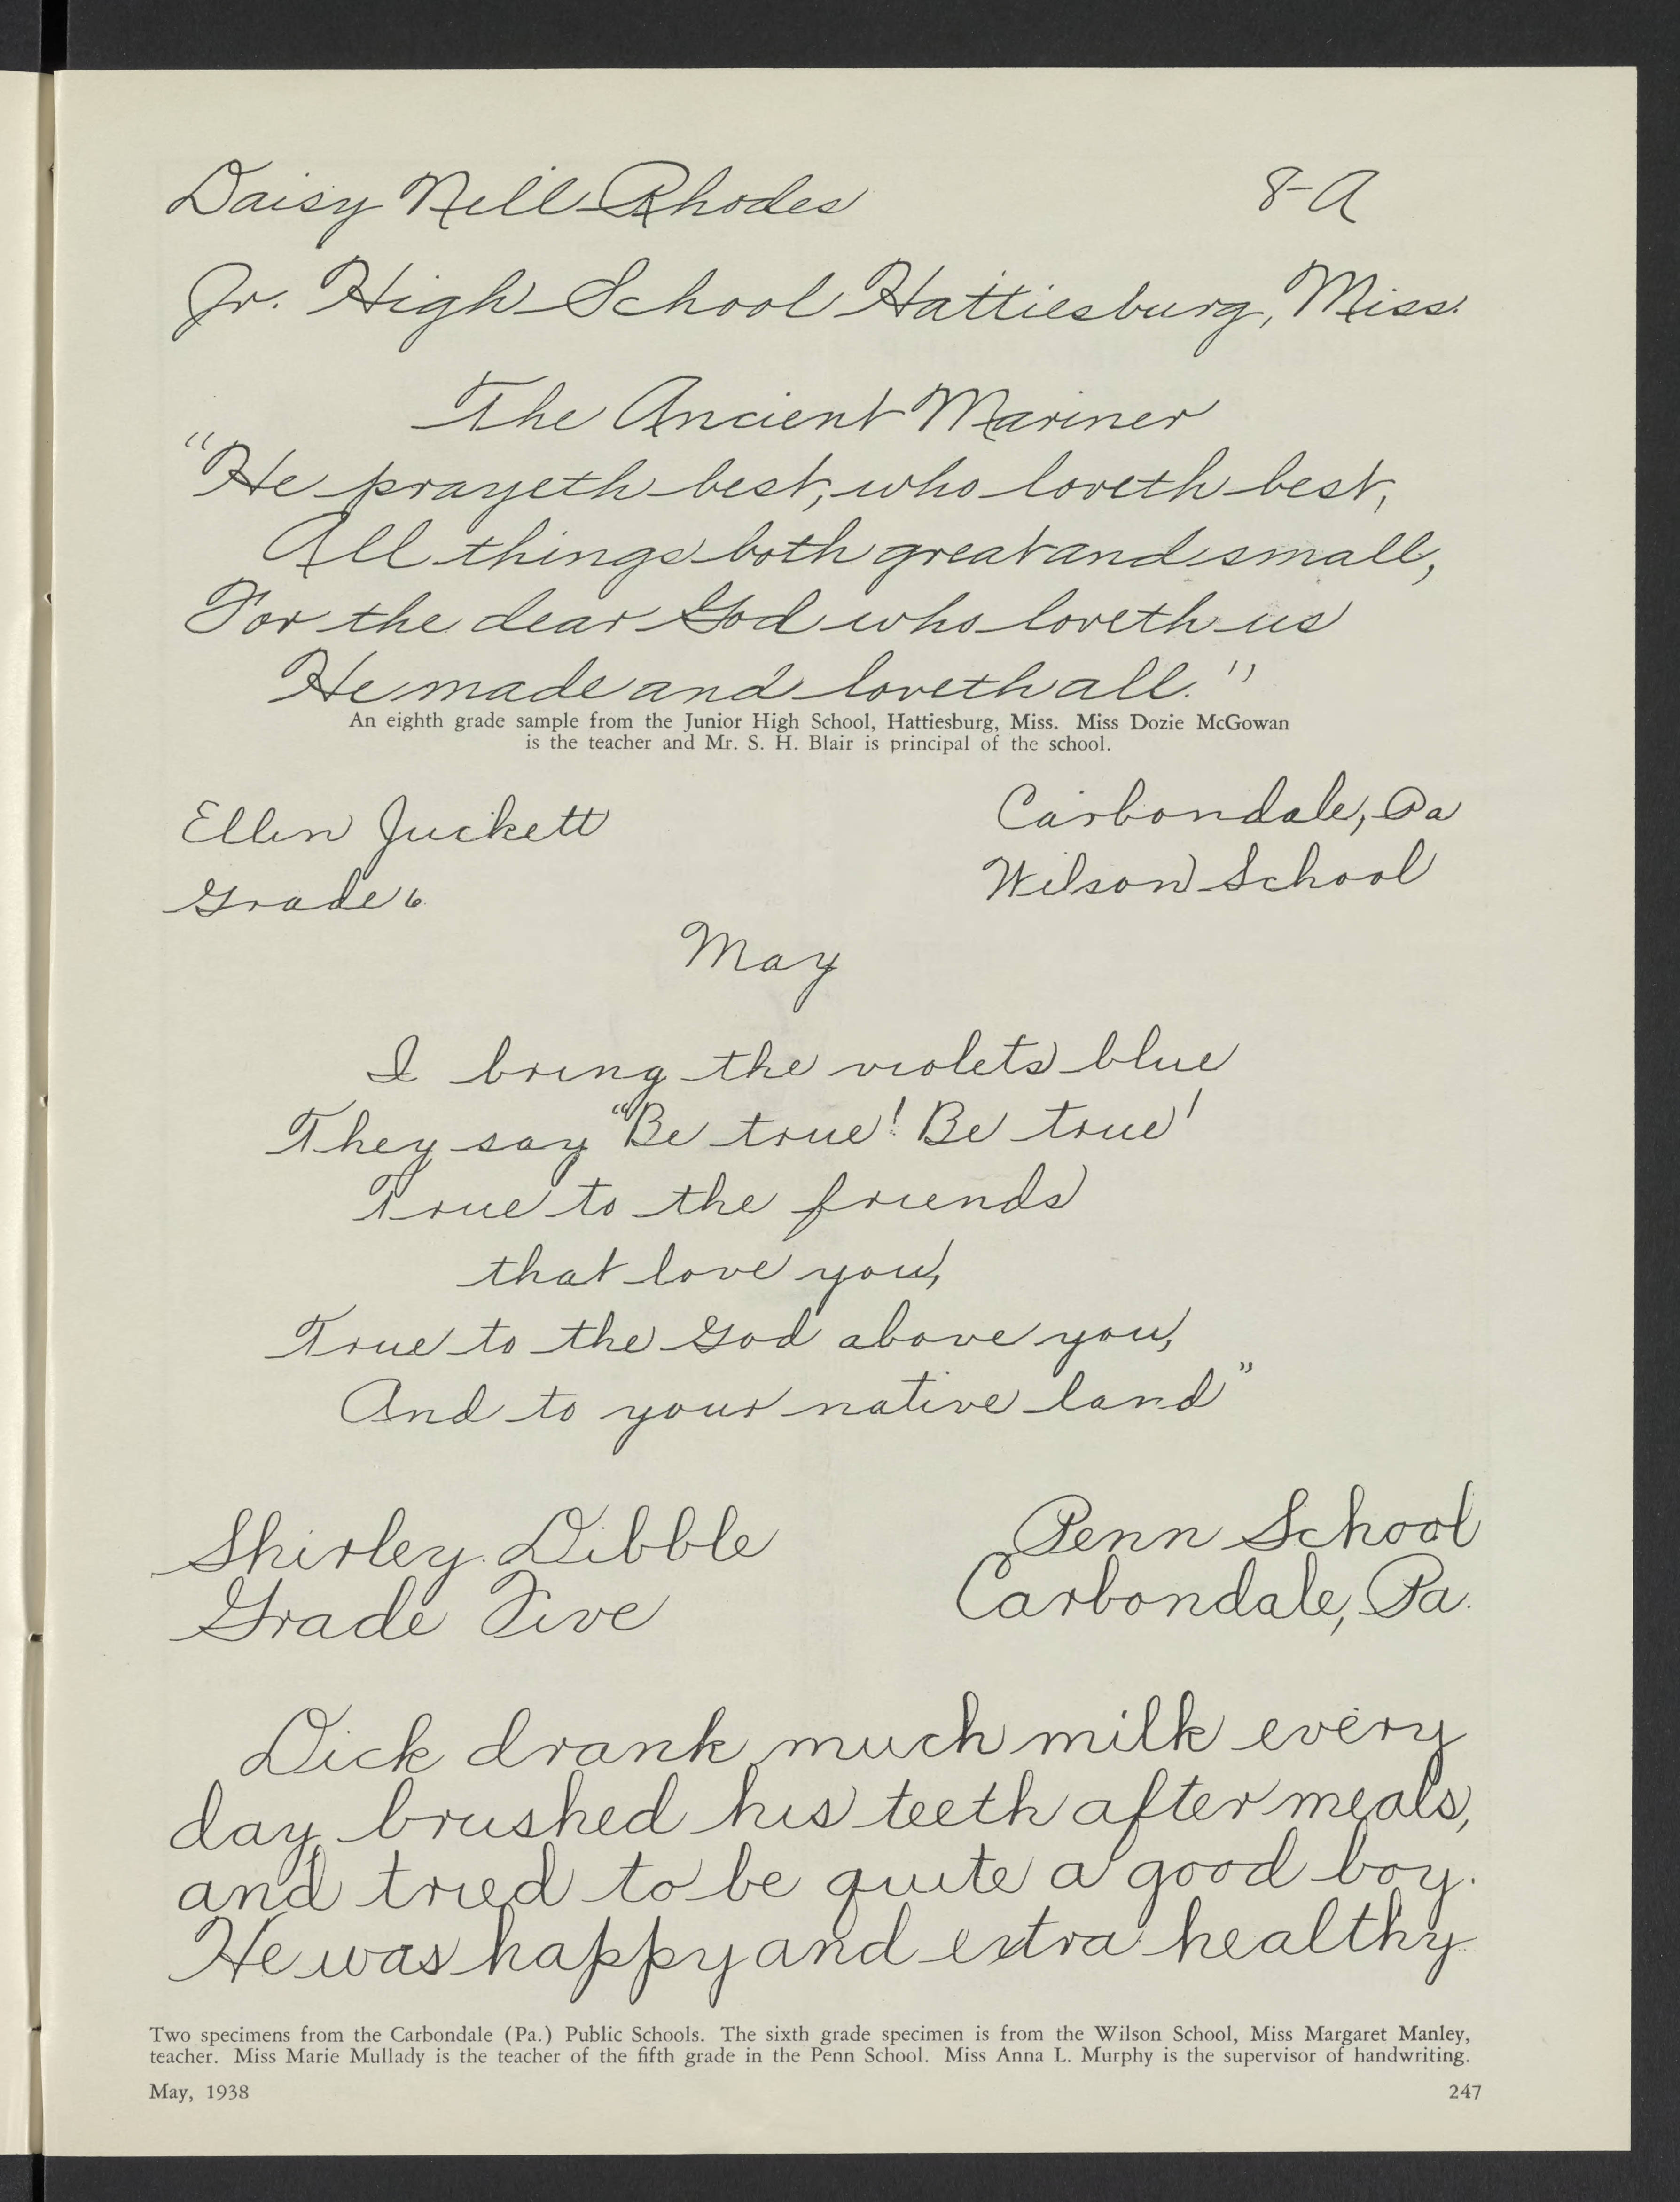 Daisy Nell Rhodes 8-A
Jr. High School Hattiesburg, Miss.
The Ancient Mariner
"He prayeth best, who loveth best,
All things both great and small,
For the dear God who loveth us
He made and loveth all."
An eighth grade sample from the Junior High School, Hattiesburg, Miss. Miss Dozie McGowan
is the teacher and Mr. S. H. Blair is principal of the school.
Ellen Juckett Carbondale, Pa
Grade 6. Wilson School
May
I bring the violets blue
They say "Be true! Be true!
True to the friends
that love you,
True to the God above you,
And to your native land"
Shirley Dibble Penn School
Grade Five Carbondale, Pa.
Dick drank much milk every
day, brushed his teeth after meals,
and tried to be quite a good boy.
He was happy and extra healthy.
Two specimens from the Carbondale (Pa.) Public Schools. The sixth grade specimen is from the Wilson School, Miss Margaret Manley,
teacher. Miss Marie Mullady is the teacher of the fifth grade in the Penn School. Miss Anna L. Murphy is the supervisor of handwriting.
May, 1938 247